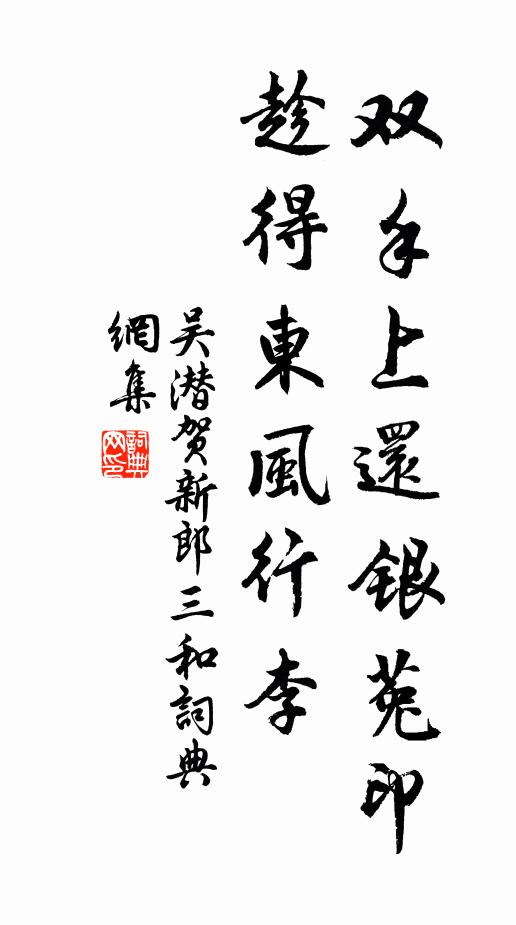 双手上還银菟印
趁得東風行李
吴潜贺新郎三和詞典
網集
詞典
网印